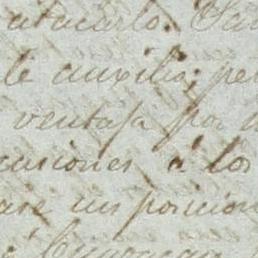 atacarlo. Sa
le auxilia; pe
ventaja por
casiones á los
are un porcion